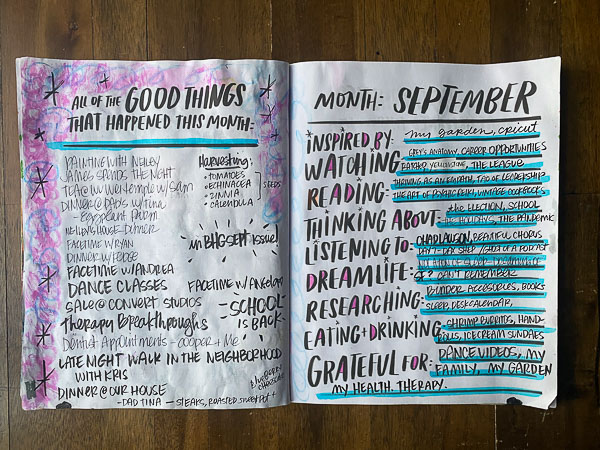 ALL OF THE GOOD THINGS
THAT HAPPENED THIS MONTH:
PAINTING WITH
JAMES SPENDS THE NIGHT
DINNER @ DADS w/TINA
- Eggplant Parm
DINNER
FACETIME w/RYAN
DINNER w/
FACETIME w/ANDREA
DANCE CLASSES
SALE @ CONVERT STUDIOS
Therapy Breakthroughs
Dentist Appointments - COOPER + Me
LATE NIGHT WALK IN THE NEIGHBORHOOD
WITH KRIS
DINNER @ OUR HOUSE
- DAD TINA - STEAKS, ROASTED SWEET POT +
Harvesting:
• TOMATOES
• ECHINACEA
• ZINNIA
• CALENDULA
SEEDS
in BHG SEPT issue!
FACETIME w/
- SCHOOL
IS BACK -
BLUEBERRY
MONTH: SEPTEMBER
INSPIRED BY: my garden, cricut
WATCHING: GREY'S ANATOMY, CAREER OPPORTUNITIES
RATCHED, YELLOWSTONE, THE LEAGUE
READING: THRIVING AS AN EMPATH, TAO OF LEADERSHIP
THE ART OF PSYCHIC REIKI, VINTAGE COOKBOOKS
THINKING ABOUT: the ELECTION, SCHOOL
THE HOLIDAYS, THE PANDEMIC
LISTENING TO: BEAUTIFUL CHORUS
DREAM LIFE: CAN'T REMEMBER
RESEARCHING: BINDER ACCESSORIES, BOOKS
DESK CALENDAR,
EATING + DRINKING: SHRIMP BURRITOS, HAND-
ROLLS, ICE CREAM SUNDAES
GRATEFUL FOR: DANCE VIDEOS, MY
FAMILY, MY GARDEN
MY HEALTH. THERAPY.